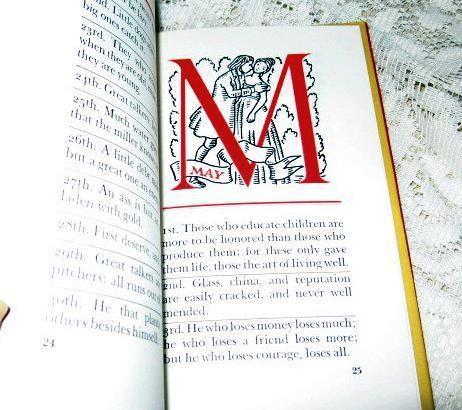 big ones catch
23rd. They
when they are old
they are young.
24th. Great talkers
25th. Much water
that the miller know
26th. A little debt
but a great one an
27th. An ass is but
laden with gold.
28th. First deserve, a
29th. Great talkers
pitchers: all runs out
30th. He that plan
others besides himself.
24
M
MAY
1st. Those who educate children are
more to be honored than those who
produce them; for these only gave
them life, those the art of living well.
2nd. Glass, china, and reputation
are easily cracked, and never well
mended.
3rd. He who loses money loses much;
he who loses a friend loses more;
but he who loses courage, loses all.
25